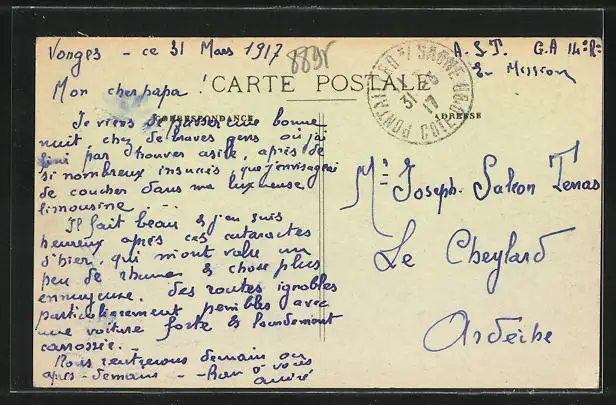 Vonges - ce 31 Mars 1917
8895
A.S.T. G.A 14e R=
En Mission
Mon cher papa !
CARTE POSTALE
CORRESPONDANCE
ADRESSE
PONTAILLER S/ SAONE COTE D'OR
31 -3
17
Je viens de passer une bonne
nuit chez de braves gens où j'ai
fini par trouver asile, après de
si nombreux insuccès que j'envisageai
de coucher dans ma luxueuse
limousine . - -
Il fait beau & j'en suis
heureux après ces cataractes
d'hier, qui m'ont valu un
peu de rhume & chose plus
ennuyeuse. des routes ignobles
particulièrement pénibles avec
une voiture forte & lourdement
carossée. -
Nous rentrerons demain ou
après-demain - - Bon à vous
André
Mr Joseph Salron Tenas
Le Cheylard
Ardèche